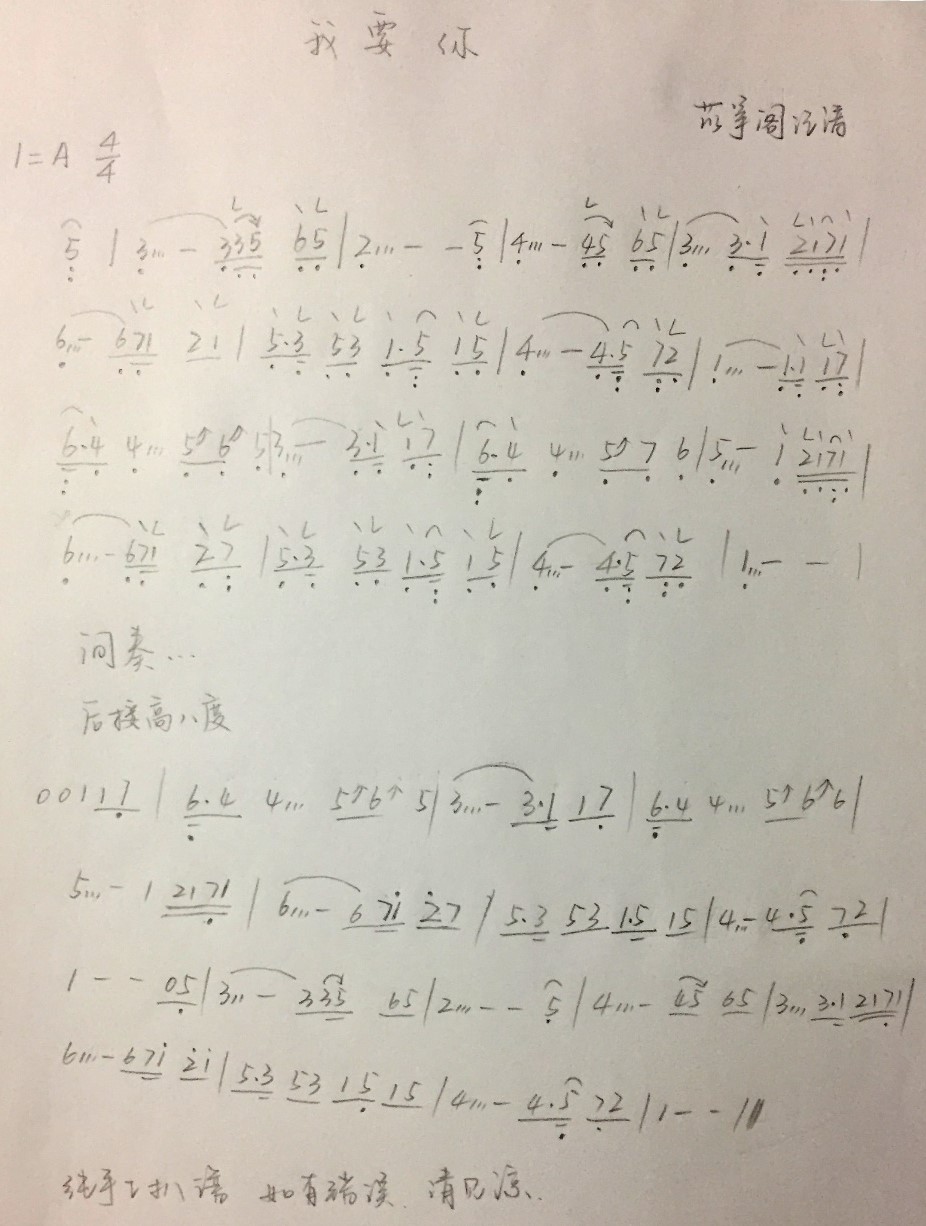 我要你
苡筝阁记谱
1=A 4/4
5 | 3… - 335 65 | 2… - - 5 | 4… - 45 65 | 3… 3·1 2171 |
6… - 671 21 | 5·3 53 1·5 15 | 4… - 4·5 72 | 1… - 1·1 17 |
6·4 4… 5↑6↑ 5 | 3… - 3·1 17 | 6·4 4… 5↑7 6 | 5… - 1 2171 |
6… - 671 27 | 5·3 53 1·5 15 | 4… - 4·5 72 | 1… - - |
间奏…
后接高八度
00117 | 6·4 4… 5↑6↑ 5 | 3… - 3·1 17 | 6·4 4… 5↑6↑6 |
5… - 1 2171 | 6… - 671 27 | 5·3 53 1·5 15 | 4… - 4·5 72 |
1 - - 05 | 3… - 335 65 | 2… - - 5 | 4… - 45 65 | 3… 3·1 2171 |
6… - 671 21 | 5·3 53 15 15 | 4… - 4·5 72 | 1 - - ||
纯手工扒谱 如有错误 请见谅.